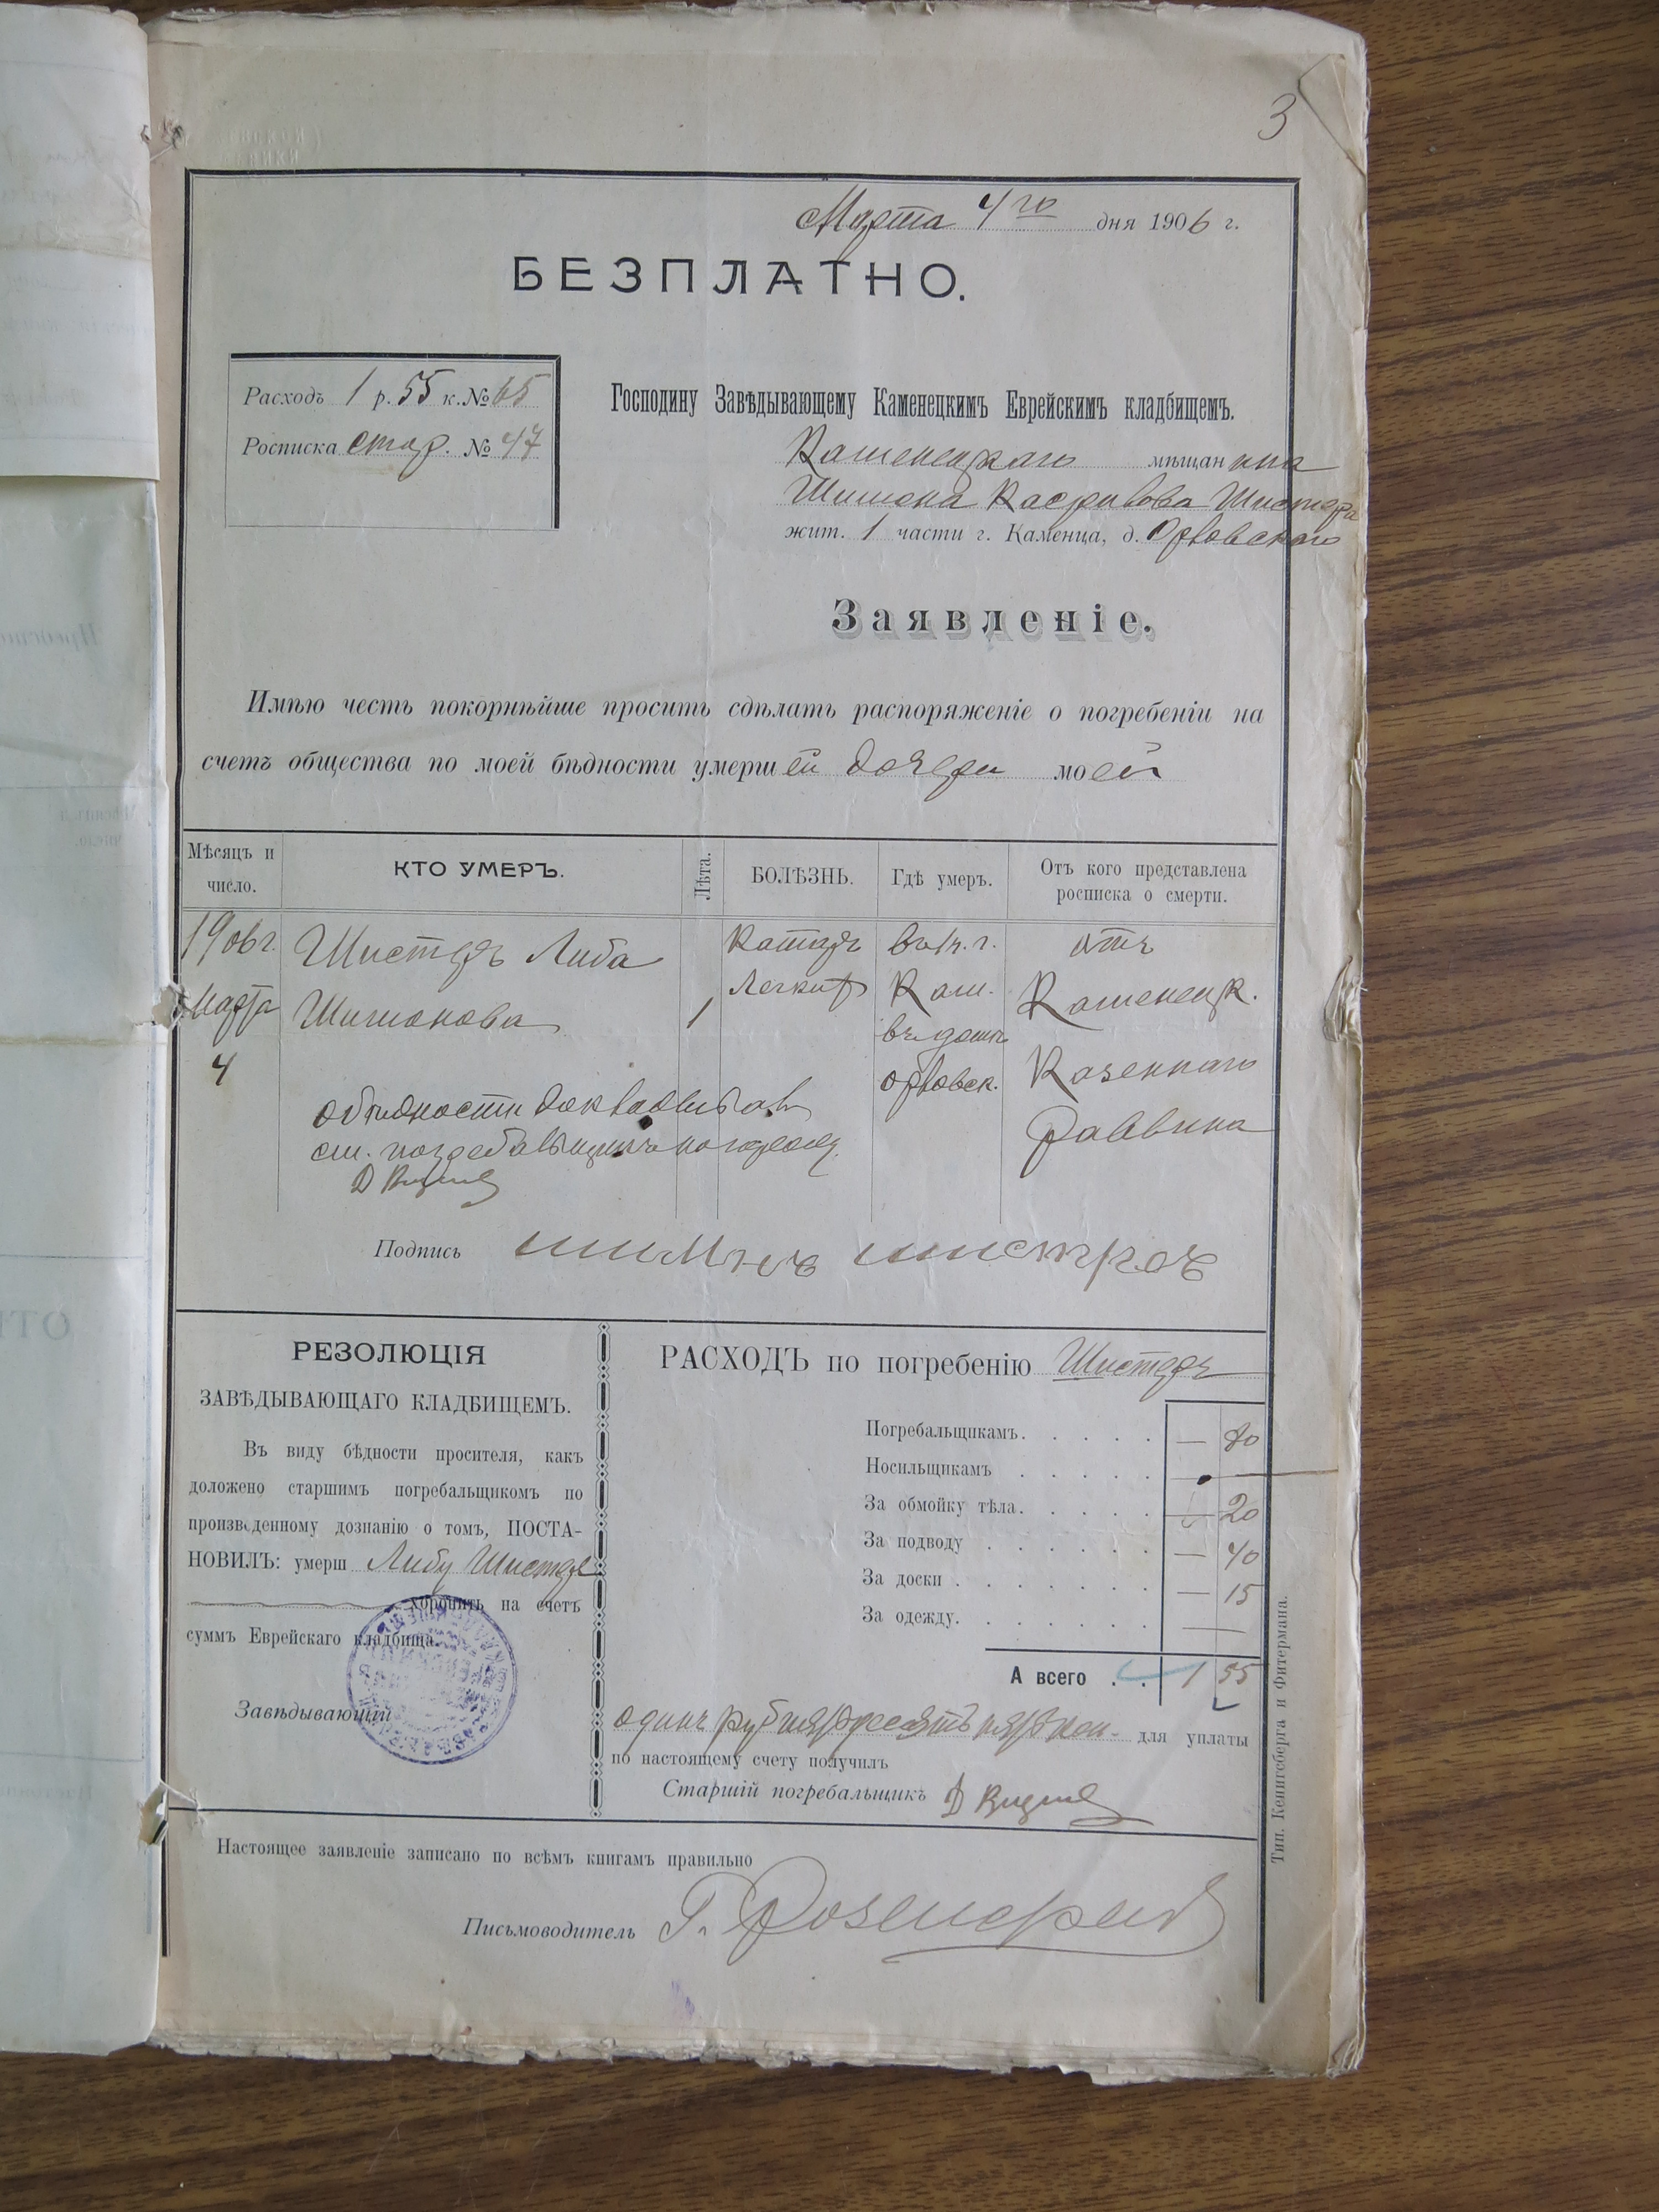 3
Марта 4го дня 1906 г.
БЕЗПЛАТНО.
Расходъ 1 р. 55 к. № 65
Росписка стар. № 47
Господину Завѣдывающему Каменецкимъ Еврейскимъ кладбищемъ.
Каменецкаго мѣщанина
Шимона Шистера
жит. 1 части г. Каменца, д. Орловскаго
Заявленіе.
Имѣю честь покорнѣйше просить сдѣлать распоряженіе о погребеніи на
счетъ общества по моей бѣдности умершей дочери моей
Мѣсяцъ и число.
КТО УМЕРЪ.
Лѣта.
БОЛѢЗНЬ.
Гдѣ умеръ.
Отъ кого представлена росписка о смерти.
1906 г.
Марта
4
Шистеръ Либа
Шимонова
1
Катаръ
Легких
въ г.
Кам.
въ домѣ
Орловск.
отъ
Каменецк.
Казеннаго
Раввина
о бѣдности докладывалъ
ст. погребальщикъ
Подпись
РЕЗОЛЮЦІЯ
ЗАВѢДЫВАЮЩАГО КЛАДБИЩЕМЪ.
Въ виду бѣдности просителя, какъ
доложено старшимъ погребальщикомъ по
произведенному дознанію о томъ, ПОСТА-
НОВИЛЪ: умерш Либу Шистеръ
хоронить на счетъ
суммъ Еврейскаго кладбища.
Завѣдывающій
РАСХОДЪ по погребенію Шистеръ
Погребальщикамъ. . . . . — 80
Носильщикамъ . . . . . —
За обмойку тѣла. . . . . — 20
За подводу . . . . . . — 40
За доски . . . . . . . — 15
За одежду. . . . . . . —
А всего . . 1 55
одинъ руб. пятдесятъ пять коп. для уплаты
по настоящему счету получилъ
Старшій погребальщикъ
Настоящее заявленіе записано по всѣмъ книгамъ правильно
Письмоводитель Г.
Тип. Кенигсберга и Фитермана.